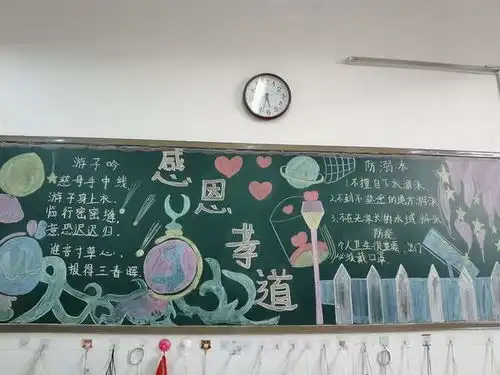 游子吟
慈母手中线
游子身上衣.
临行密密缝
意恐迟迟归.
谁言寸草心.
报得三春晖
感恩孝道
防溺水
1.不擅自下水游泳
2.不到不熟悉的地方游泳
3.不在无家长的水域游泳
防疫
个人卫生很重要,出门
必须戴口罩